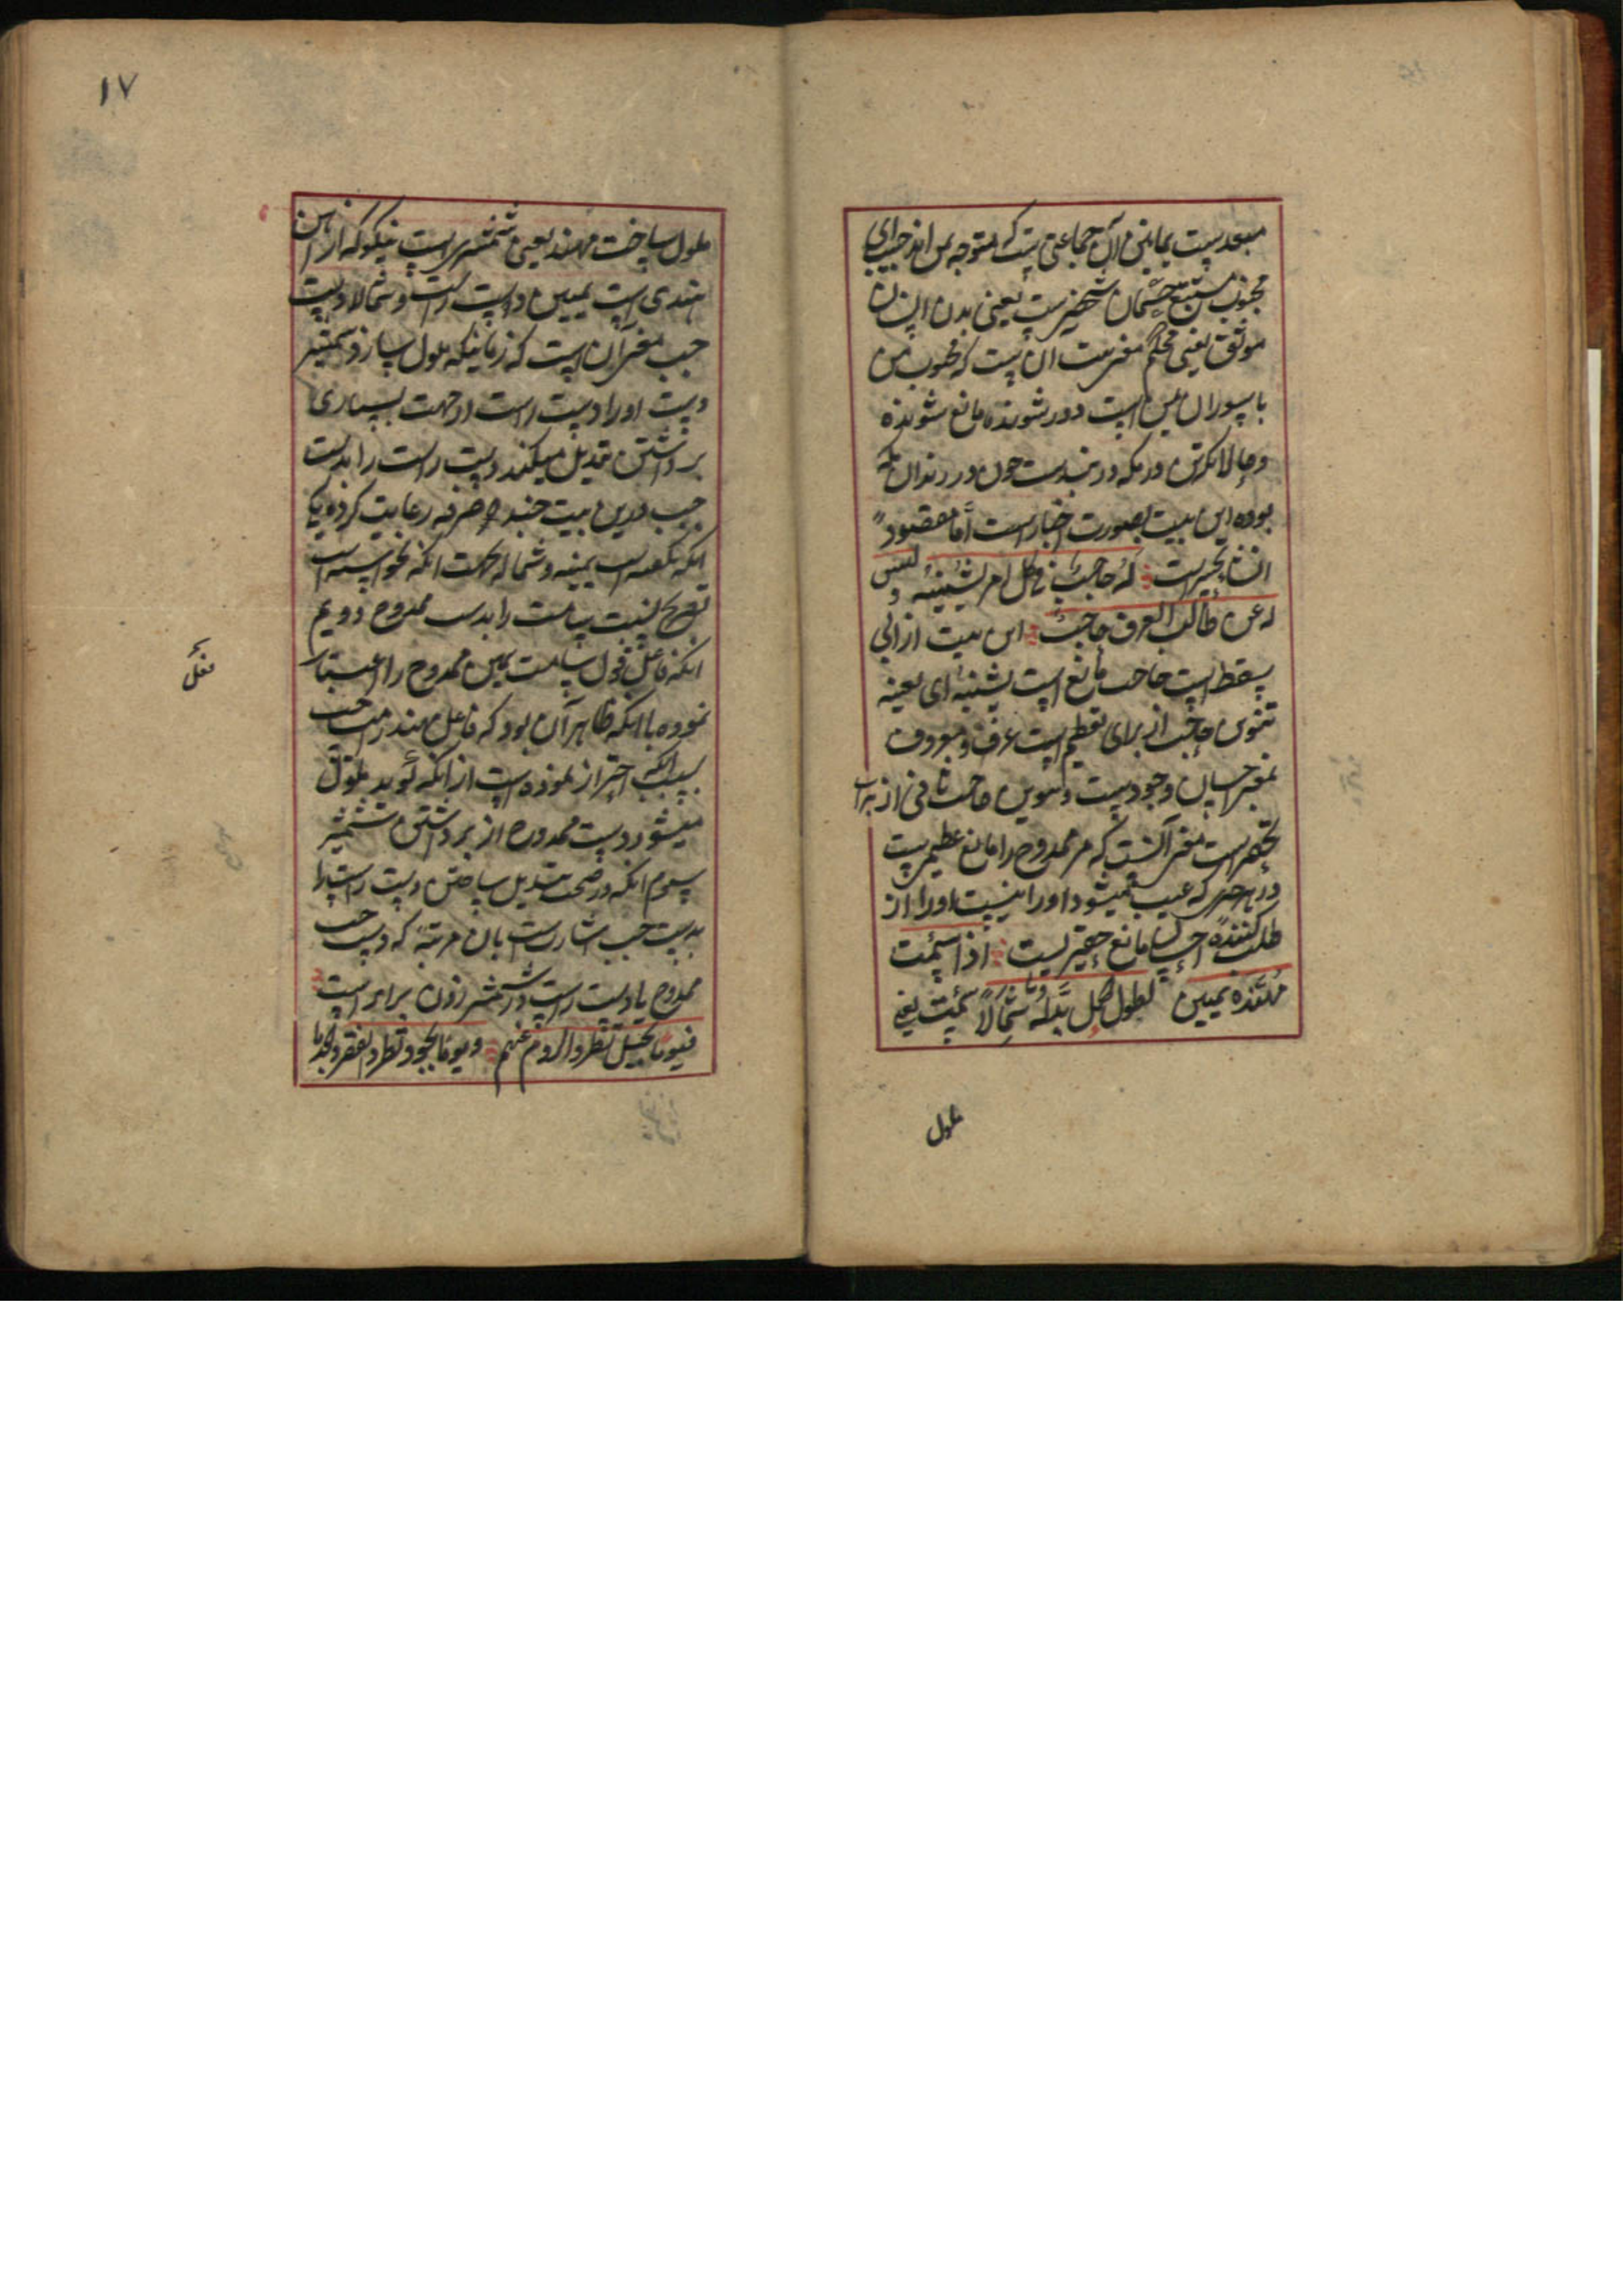 مصعد ست یمانین آن جماعتی است که متوجه یمن اند جنیب ای
مجنوب مستتبع جثمان شخص است یعنی بدن انسان
موثق یعنی محکم معنی بیت آن است که محبوب من
با سواران یمن است دور شونده مانع شونده
و حالانکه تن در مکه در بند ست چون در زندان مکه
بوده این بیت بصورت اخبار است اما مقصود
انشا تحسر است له حاجب فی کل امر یشینه ولیس
له عن طالب العرف حاجب این بیت از ابی
سقط است حاجب مانع است یشینه ای یعیبه
تنوین حاجب از برای تعظیم است عرف و معروف
بمعنی احسان وجود ست و تنوین حاجب ثانی از برای
تحقیر است معنی آنست که مر ممدوح را مانع عظیم ست
در هر چیزی که عیب میشود او را و نیست او را از
طلب کننده احسان مانع حقیر نیست اذا سئمت
مهنده یمین لطول الحمل بدله شمالا سئمت یعنی
ملول
۱۷
ملول ساخت مهند یعنی شمشیری است نیکو که از آهن
هندی است یمین دست راست و شمالا دست
چپ معنی آن است که زمانیکه ملول سازد شمشیر
دست او را دست راست از جهت بسیاری
برداشتن تبدیل میکند دست راست را بدست
چپ درین بیت چند صرفه رعایت کرد و یکی
آنکه نگفته است یمینه و شماله بجهت آنکه نخواسته است
تصریح نسبت سآمت را بدست ممدوح دویم
آنکه فاعل قول سآمت یمین ممدوح را اعتبار
نموده با آنکه ظاهر آن بود که فاعل مهند را میساخت
بسبب آنکه احتراز نموده است از آنکه گوید ملول
میشود دست ممدوح از برداشتن شمشیر
سوم آنکه در صحت تبدیل ساختن دست راست را
بدست چپ اشارت است بآن مرتبه که دست چپ
ممدوح با دست راست در شمشیر زدن برابر است
فیوما بخیل تطرد الروم عنهم ویوما بجود تطرد الفقر والجدبا